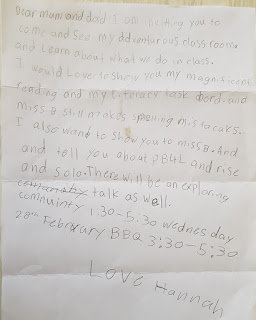 Dear mum and dad I am inviting you to
come and see my adventurous class room
and Learn about what we do in class.
I would Love to show you my magnificent
reading and my Literacy task board. and
miss B still makes spelling mistakes.
I also want to show you to miss B. And
and tell you about PB4L and rise
and solo. There will be an exploring
talk as well.
comnuinty 1:30-5:30 wednesday
28th February BBQ 3:30-5:30
Love Hannah